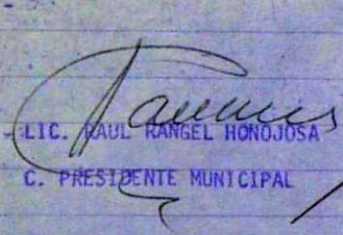 - LIC. RAUL RANGEL HONOJOSA
C. PRESIDENTE MUNICIPAL